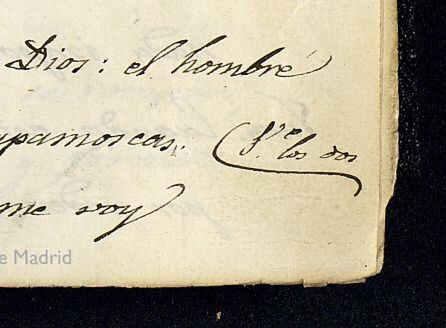 Dios: el hombre
pamoscas. (V.e los dos
me voy
e Madrid